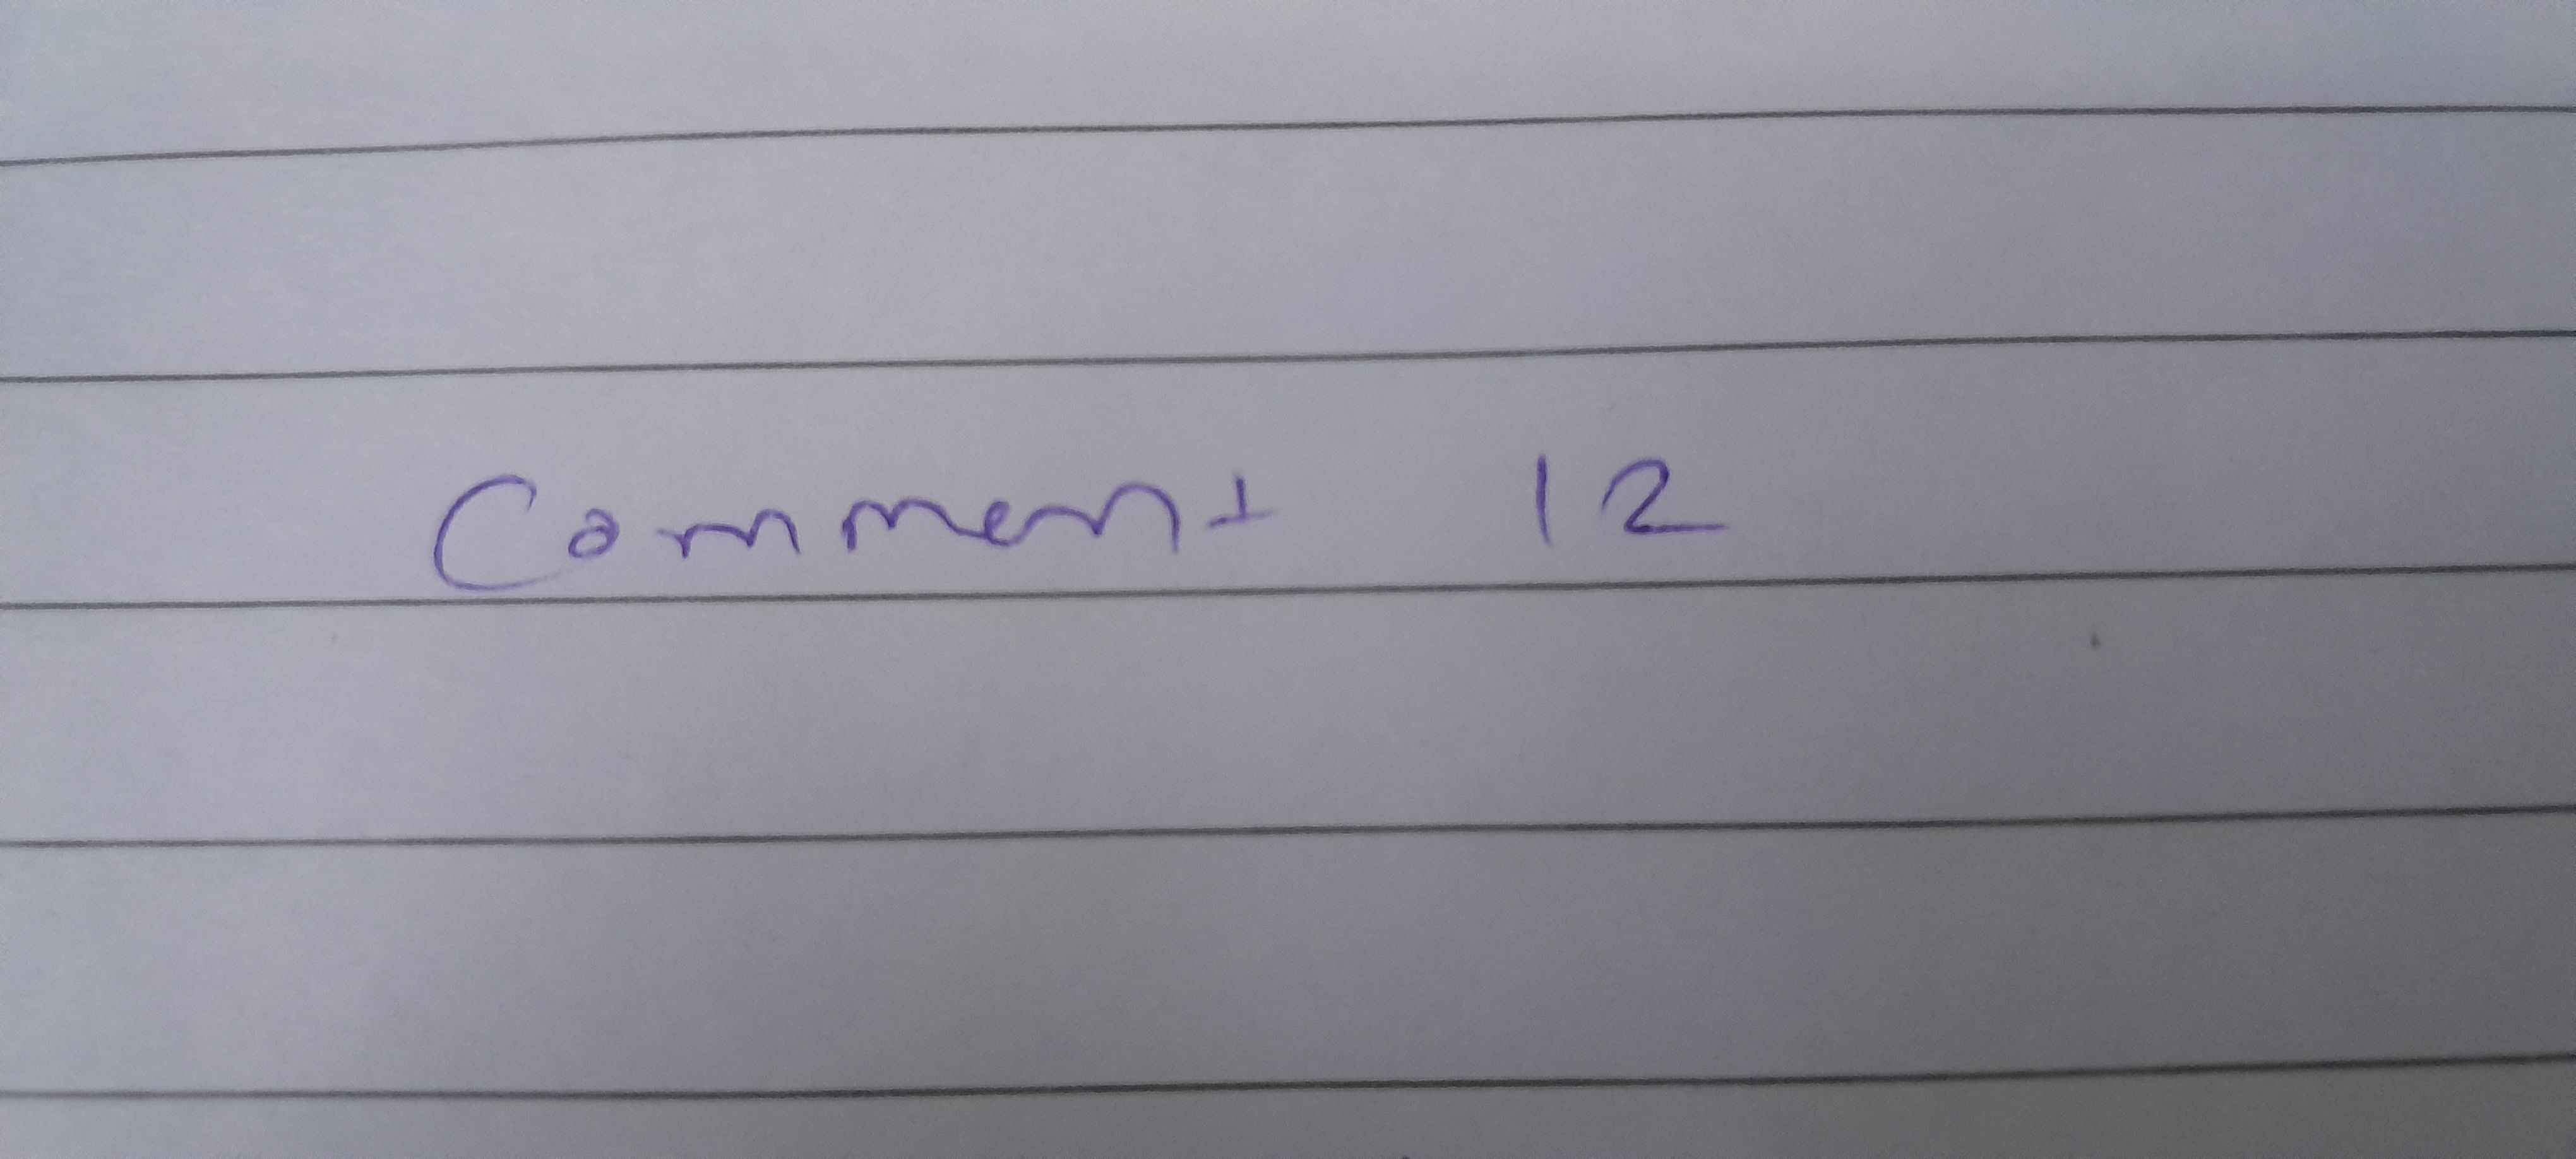 Comment 12